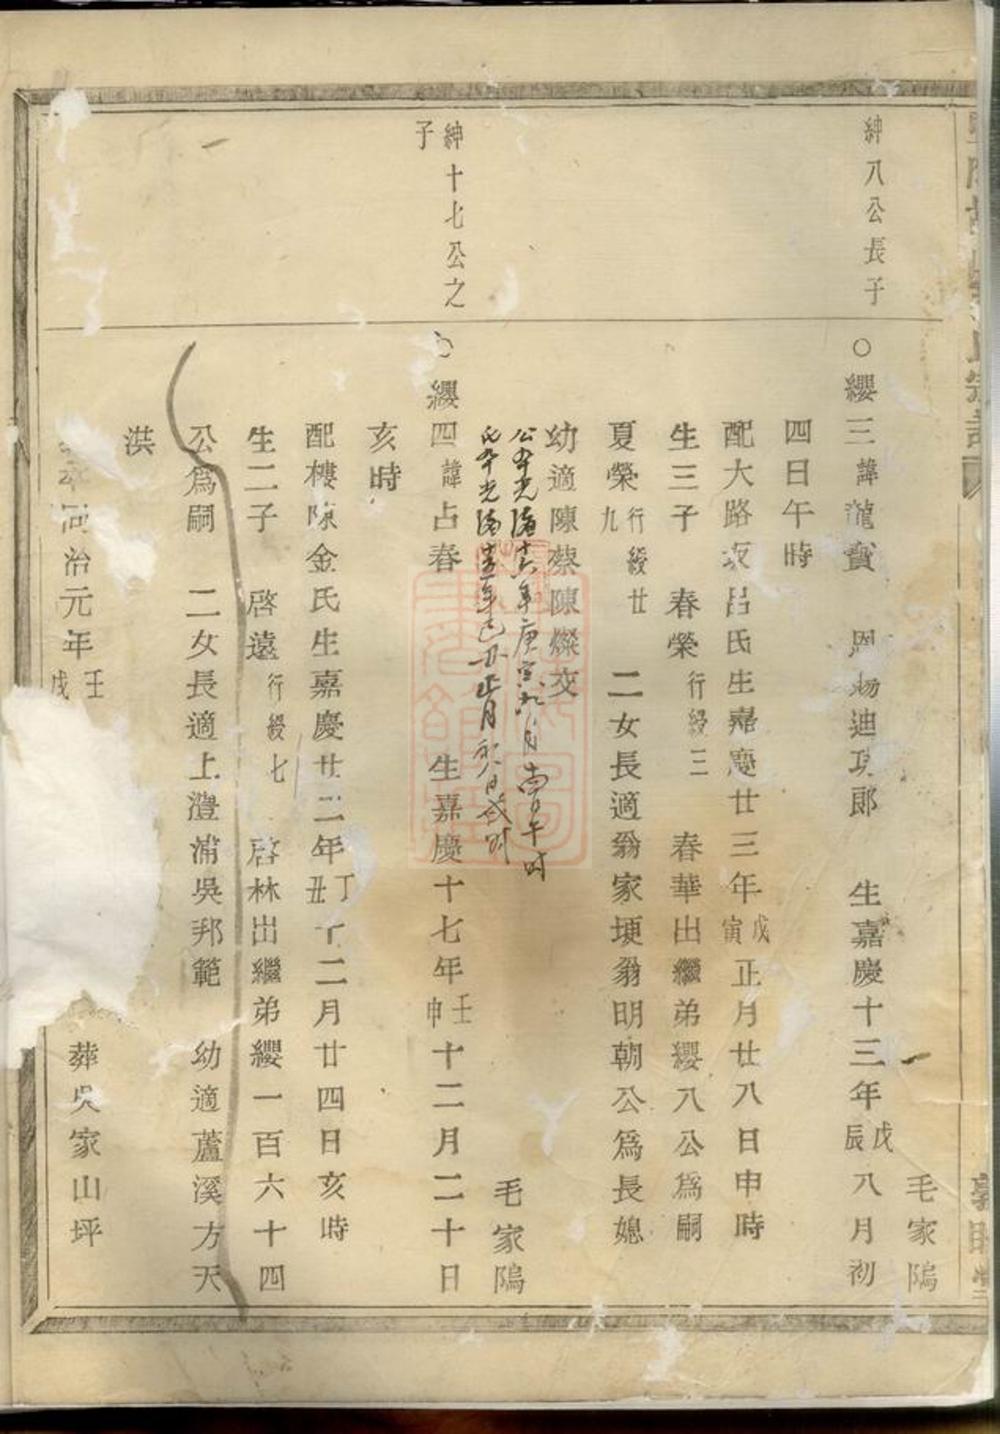 紳八公長子
毛家隖
○纓三諱龍賓 恩賜迪功郎 生嘉慶十三年戊辰八月初
四日午時
配大路坂呂氏生嘉慶廿三年戊寅正月廿八日申時
生三子 春榮行綬三 春華出繼弟纓八公爲嗣
夏榮行綬廿九 二女長適翁家埂翁明朝公爲長媳
幼適陳蔡陳燦文
毛家隖
公卒光緒十六年庚寅九月 日午时
氏卒光緒十五年己丑正月初八日戌时
紳十七公之子
○纓四諱占春 生嘉慶十七年壬申十二月二十日
亥時
配樓陳金氏生嘉慶廿二年丁丑十二月廿四日亥時
生二子 啓遠行綬七 啓林出繼弟纓一百六十四
公爲嗣 二女長適上澧浦吳邦範 幼適蘆溪方天
洪
卒同治元年壬戌 葬吳家山坪